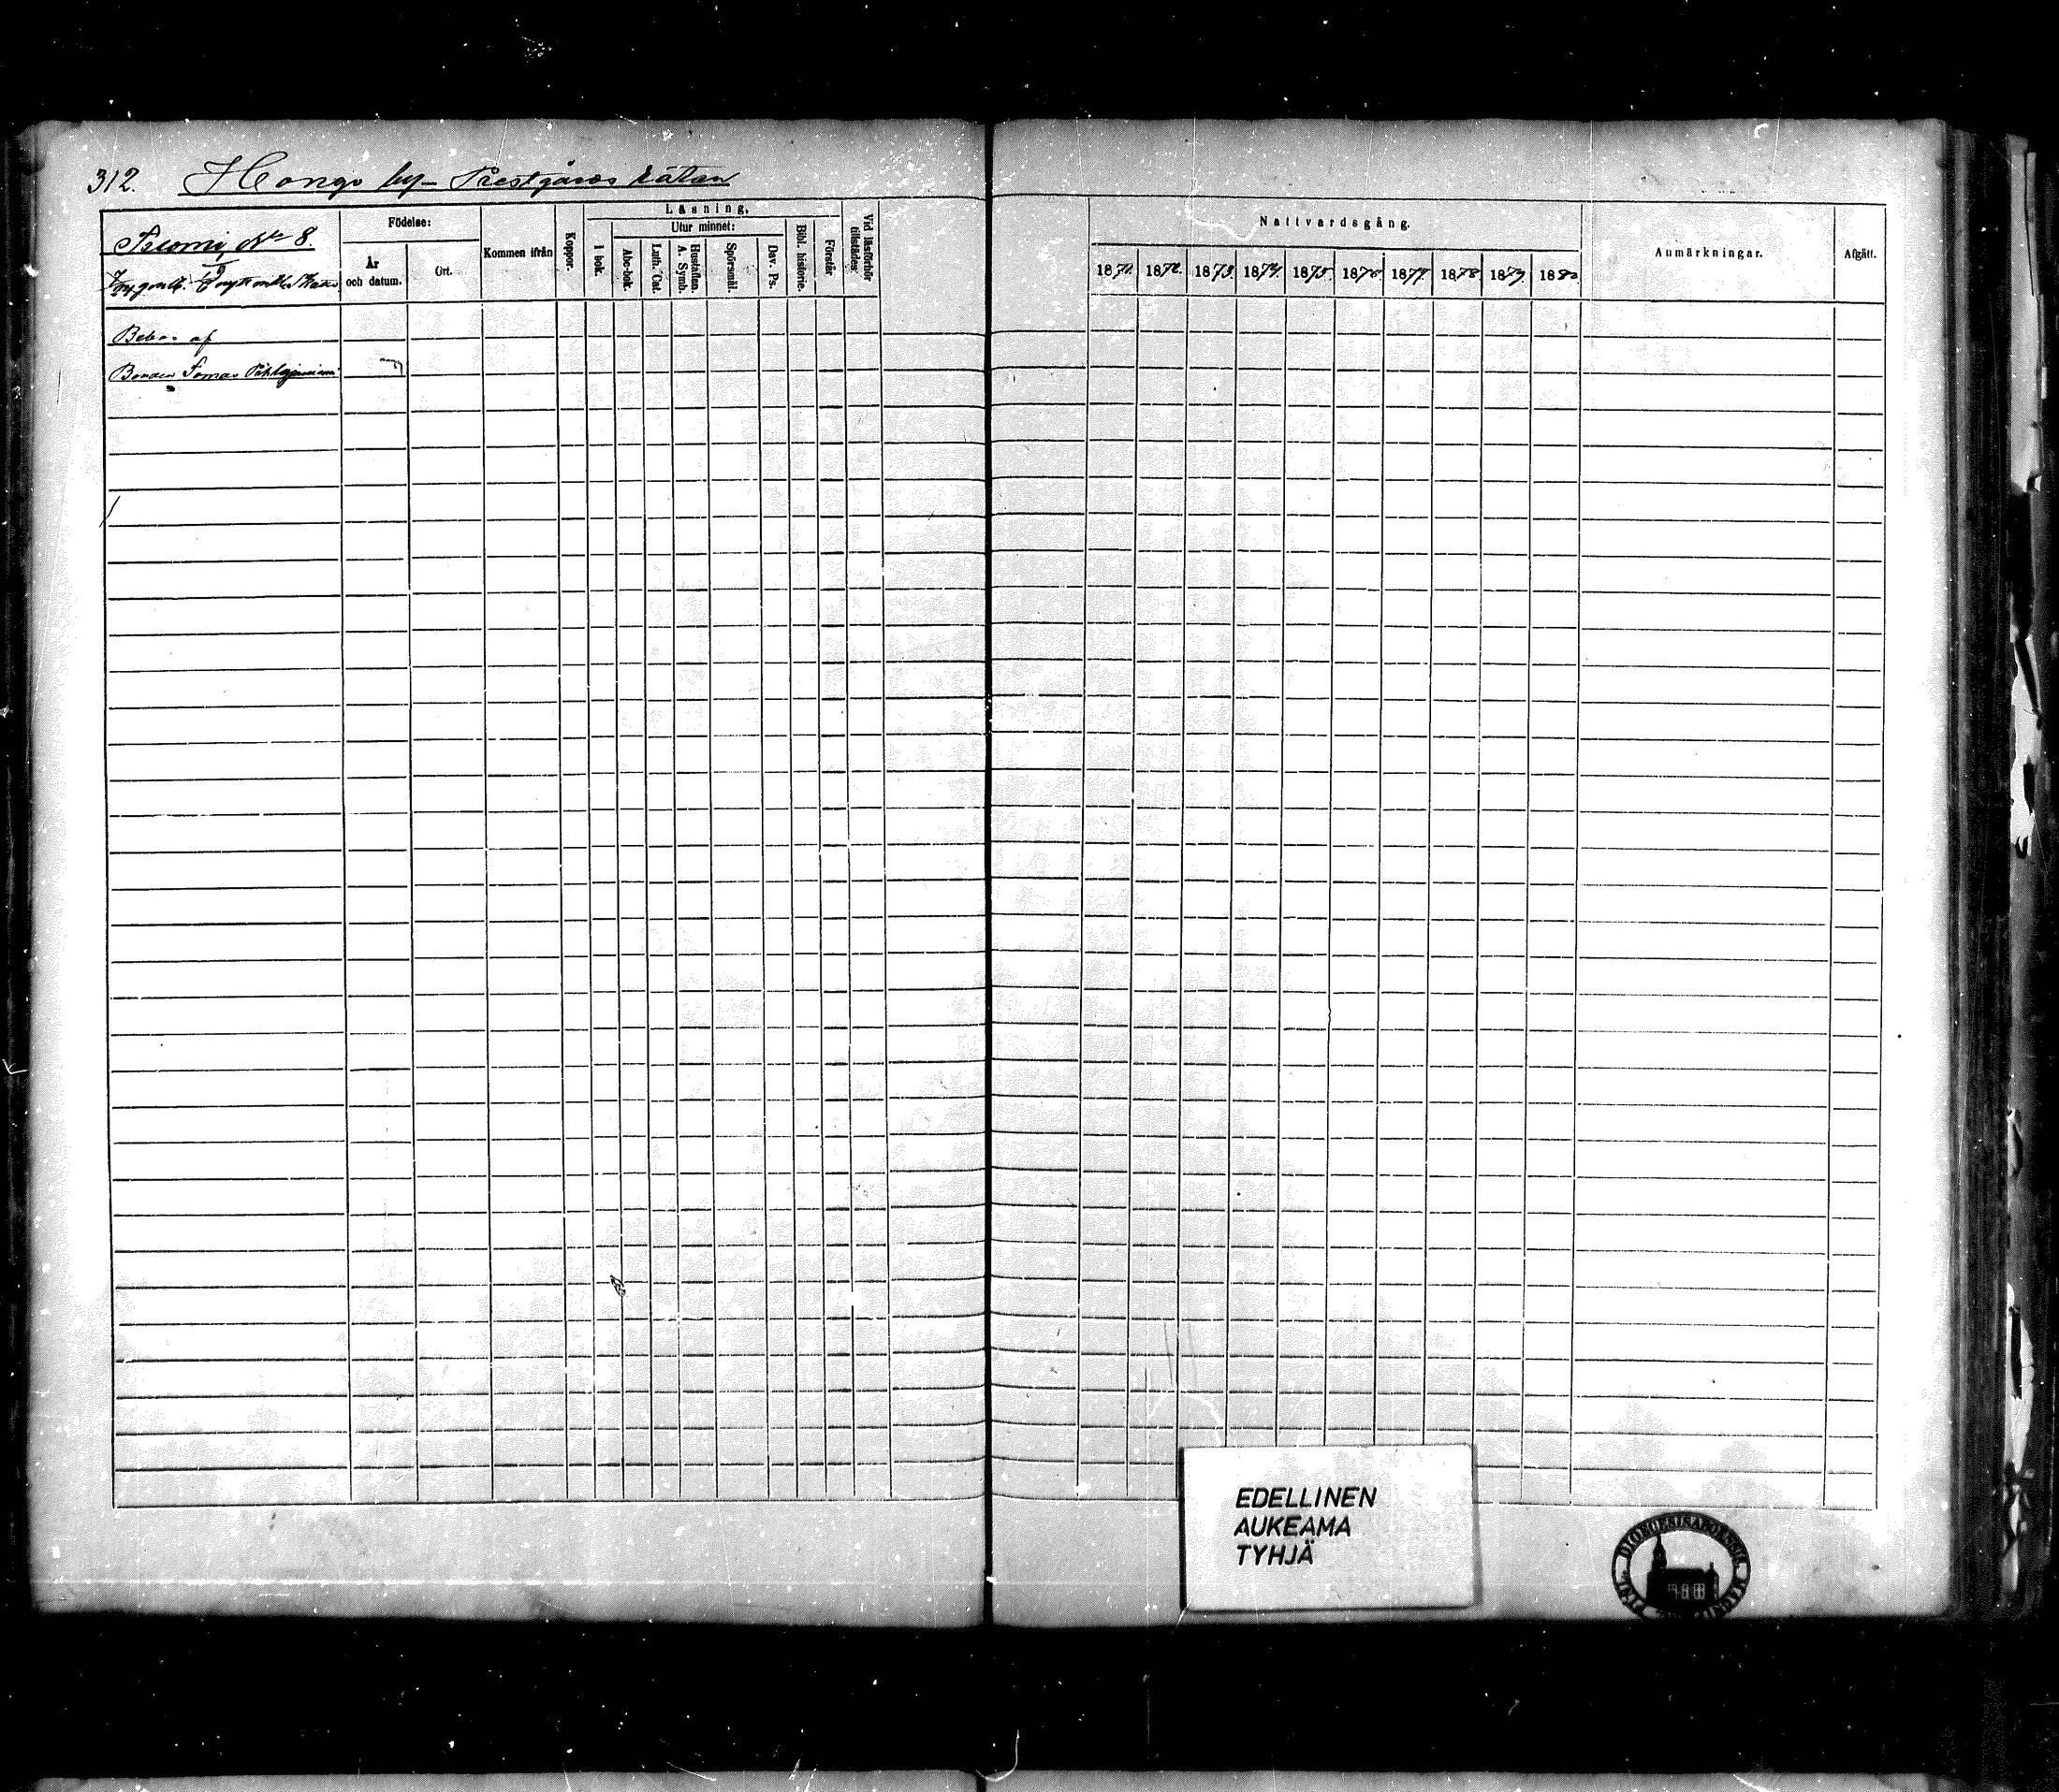 312. Hongo by- Prestgårds råtan
Suomi No 8.
Bebos af
Bonden Tomas
Födelse:
År
och datum.
Ort.
Kommen ifrån
Koppor.
Läsning.
I bok.
Utur minnet:
Abc-bok.
Luth. Cat.
Hustaflan.
A. Symb.
Spörsmål.
Dav. Ps.
Bibl. historie.
Förstår
Vid läsförhör
tillstädes:
Nattvardsgång.
1871. 1872. 1873. 1874. 1875. 1876. 1877. 1878. 1879. 1880.
Anmärkningar.
Afgått.
EDELLINEN
AUKEAMA
TYHJÄ